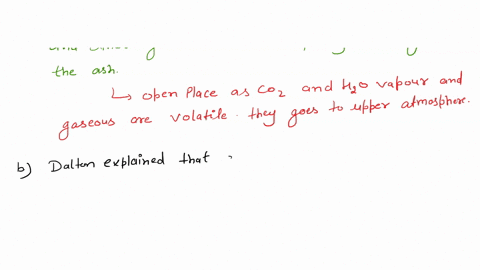 the ash.
↳ open place as CO2 and H2O vapour and
gaseous are volatile. they goes to upper atmosphere.
b) Dalton explained that